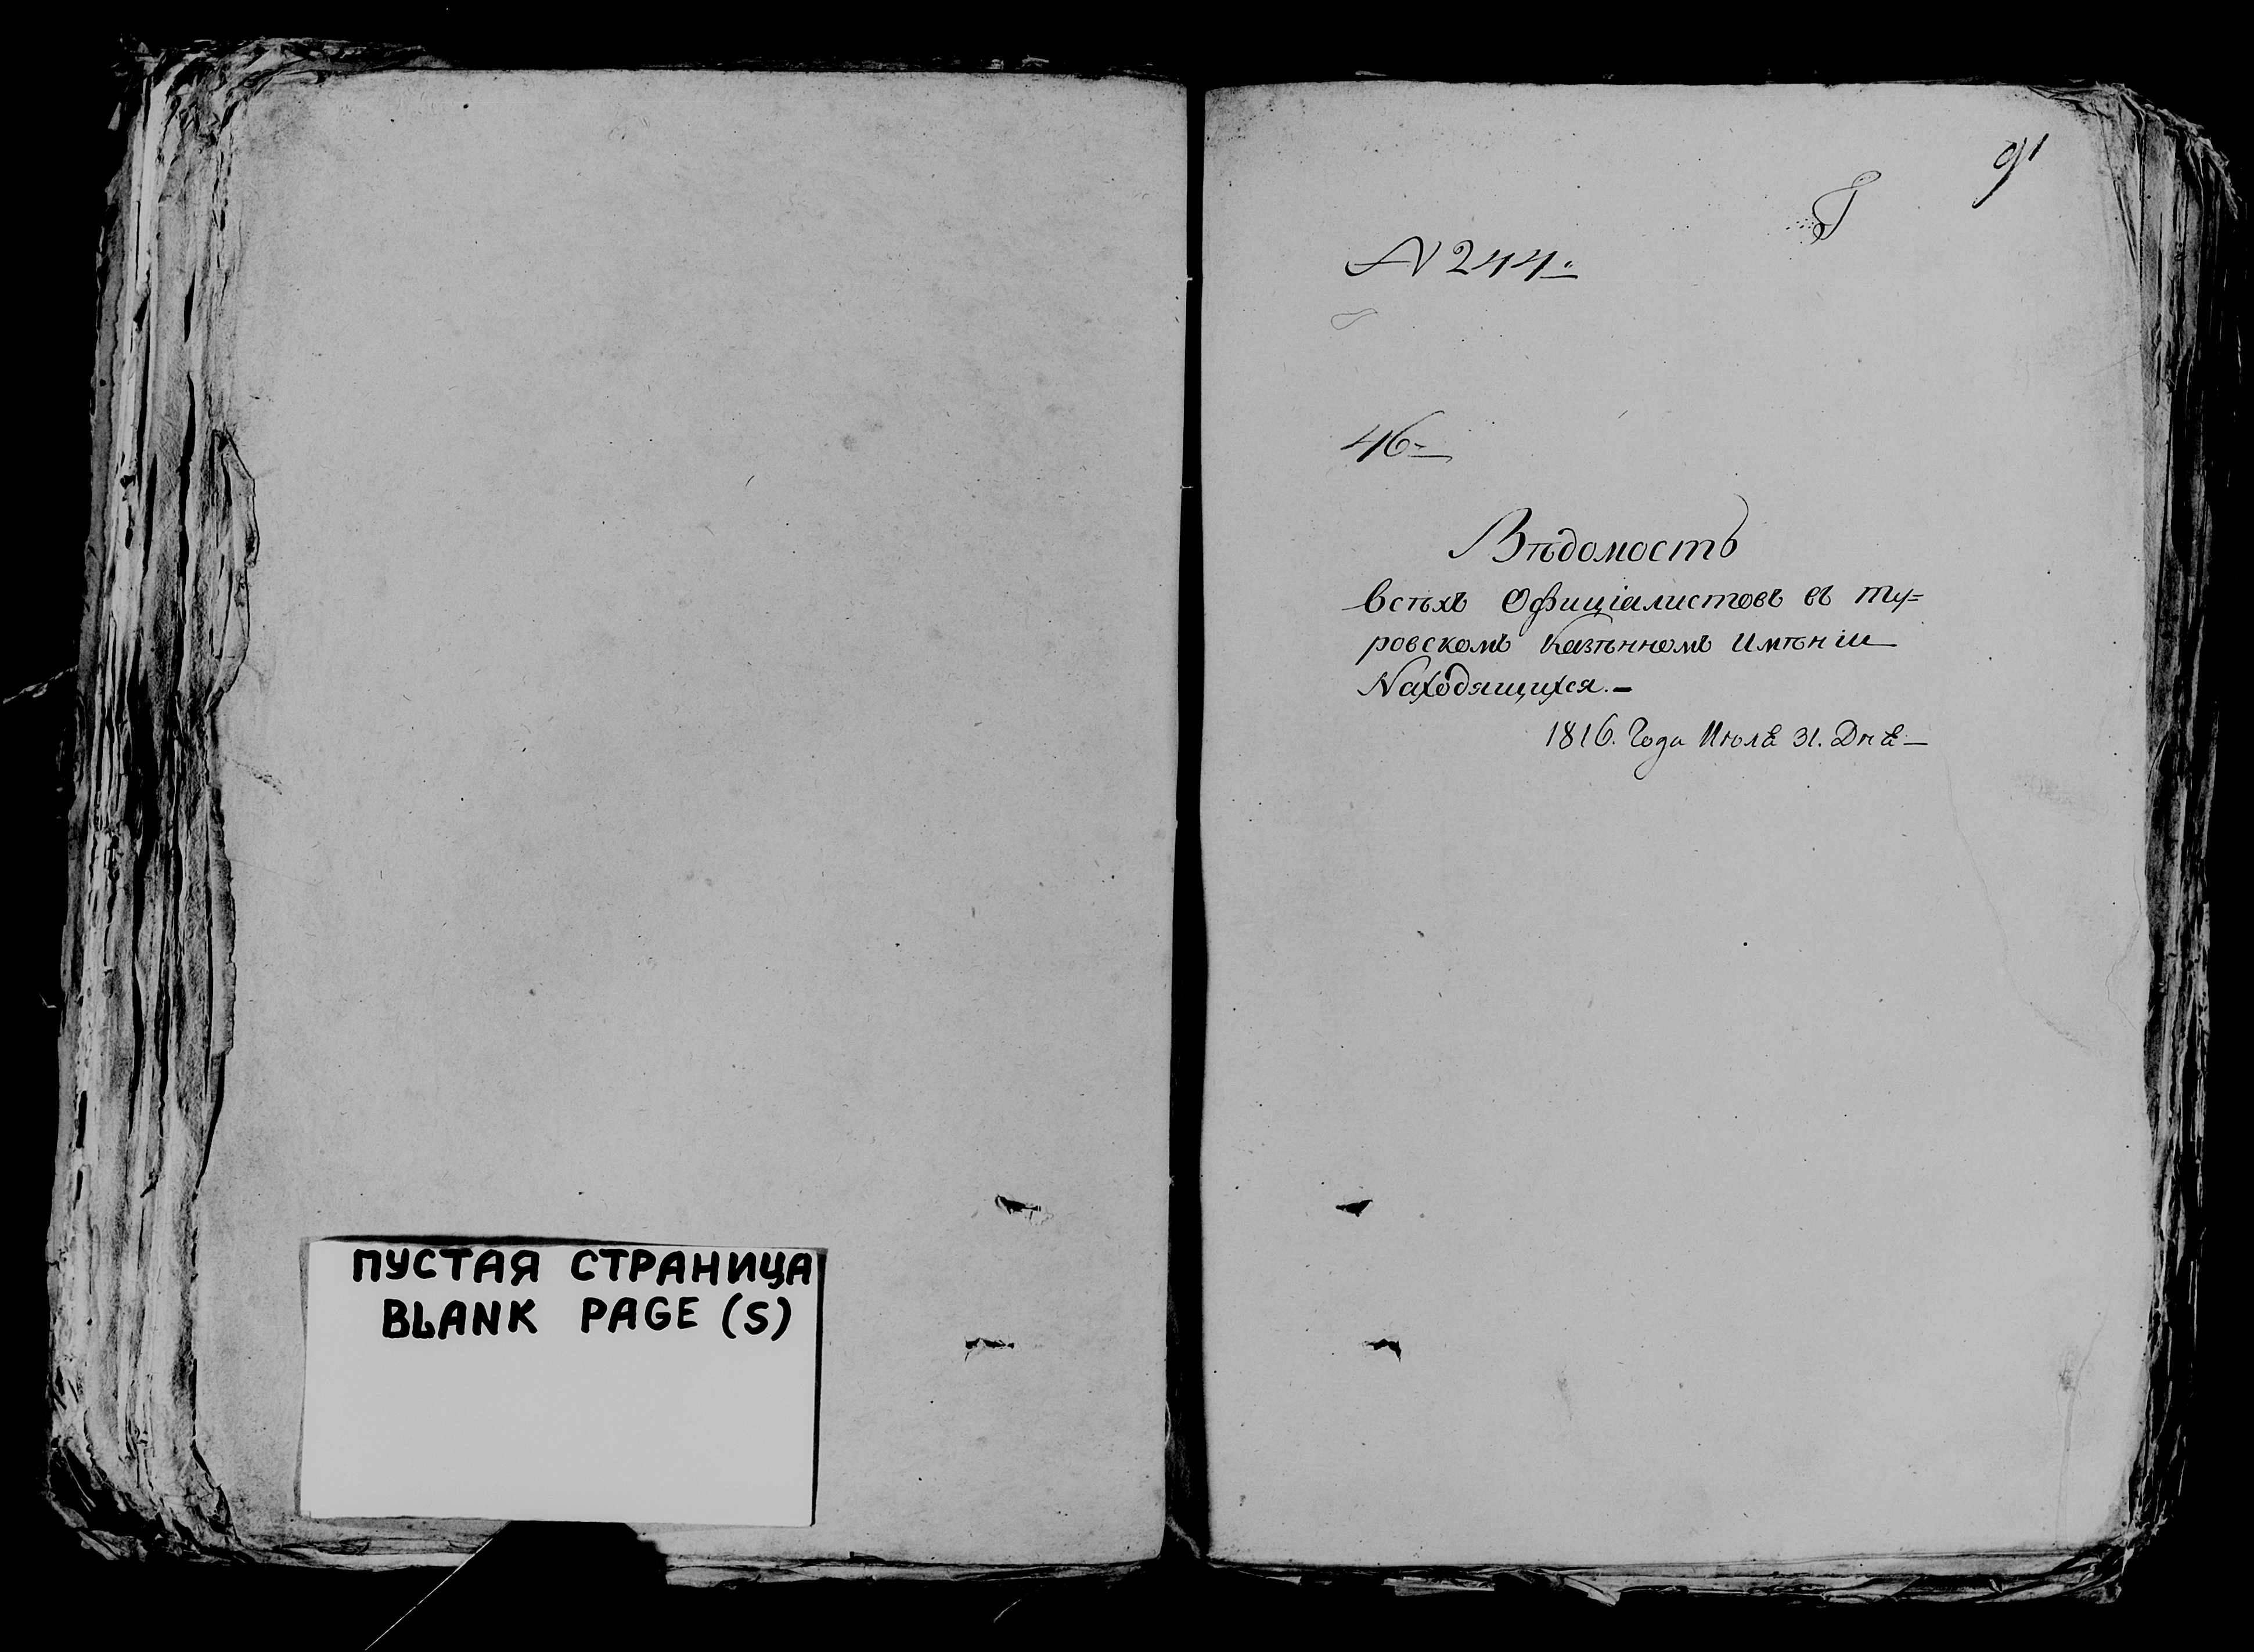 ПУСТАЯ СТРАНИЦА
BLANK PAGE (S)
91
N 244.
46
Вѣдомость
всѣхъ Офиціалистовъ въ ту=
ровскомъ Казѣнномъ Имѣніи
Находящихся.
1816. Года Июля 31. Дня